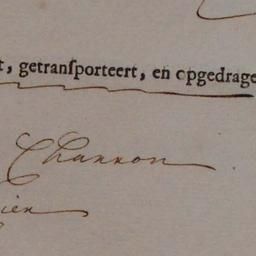 t, getranſporteert, en opgedrage
Channon
ien